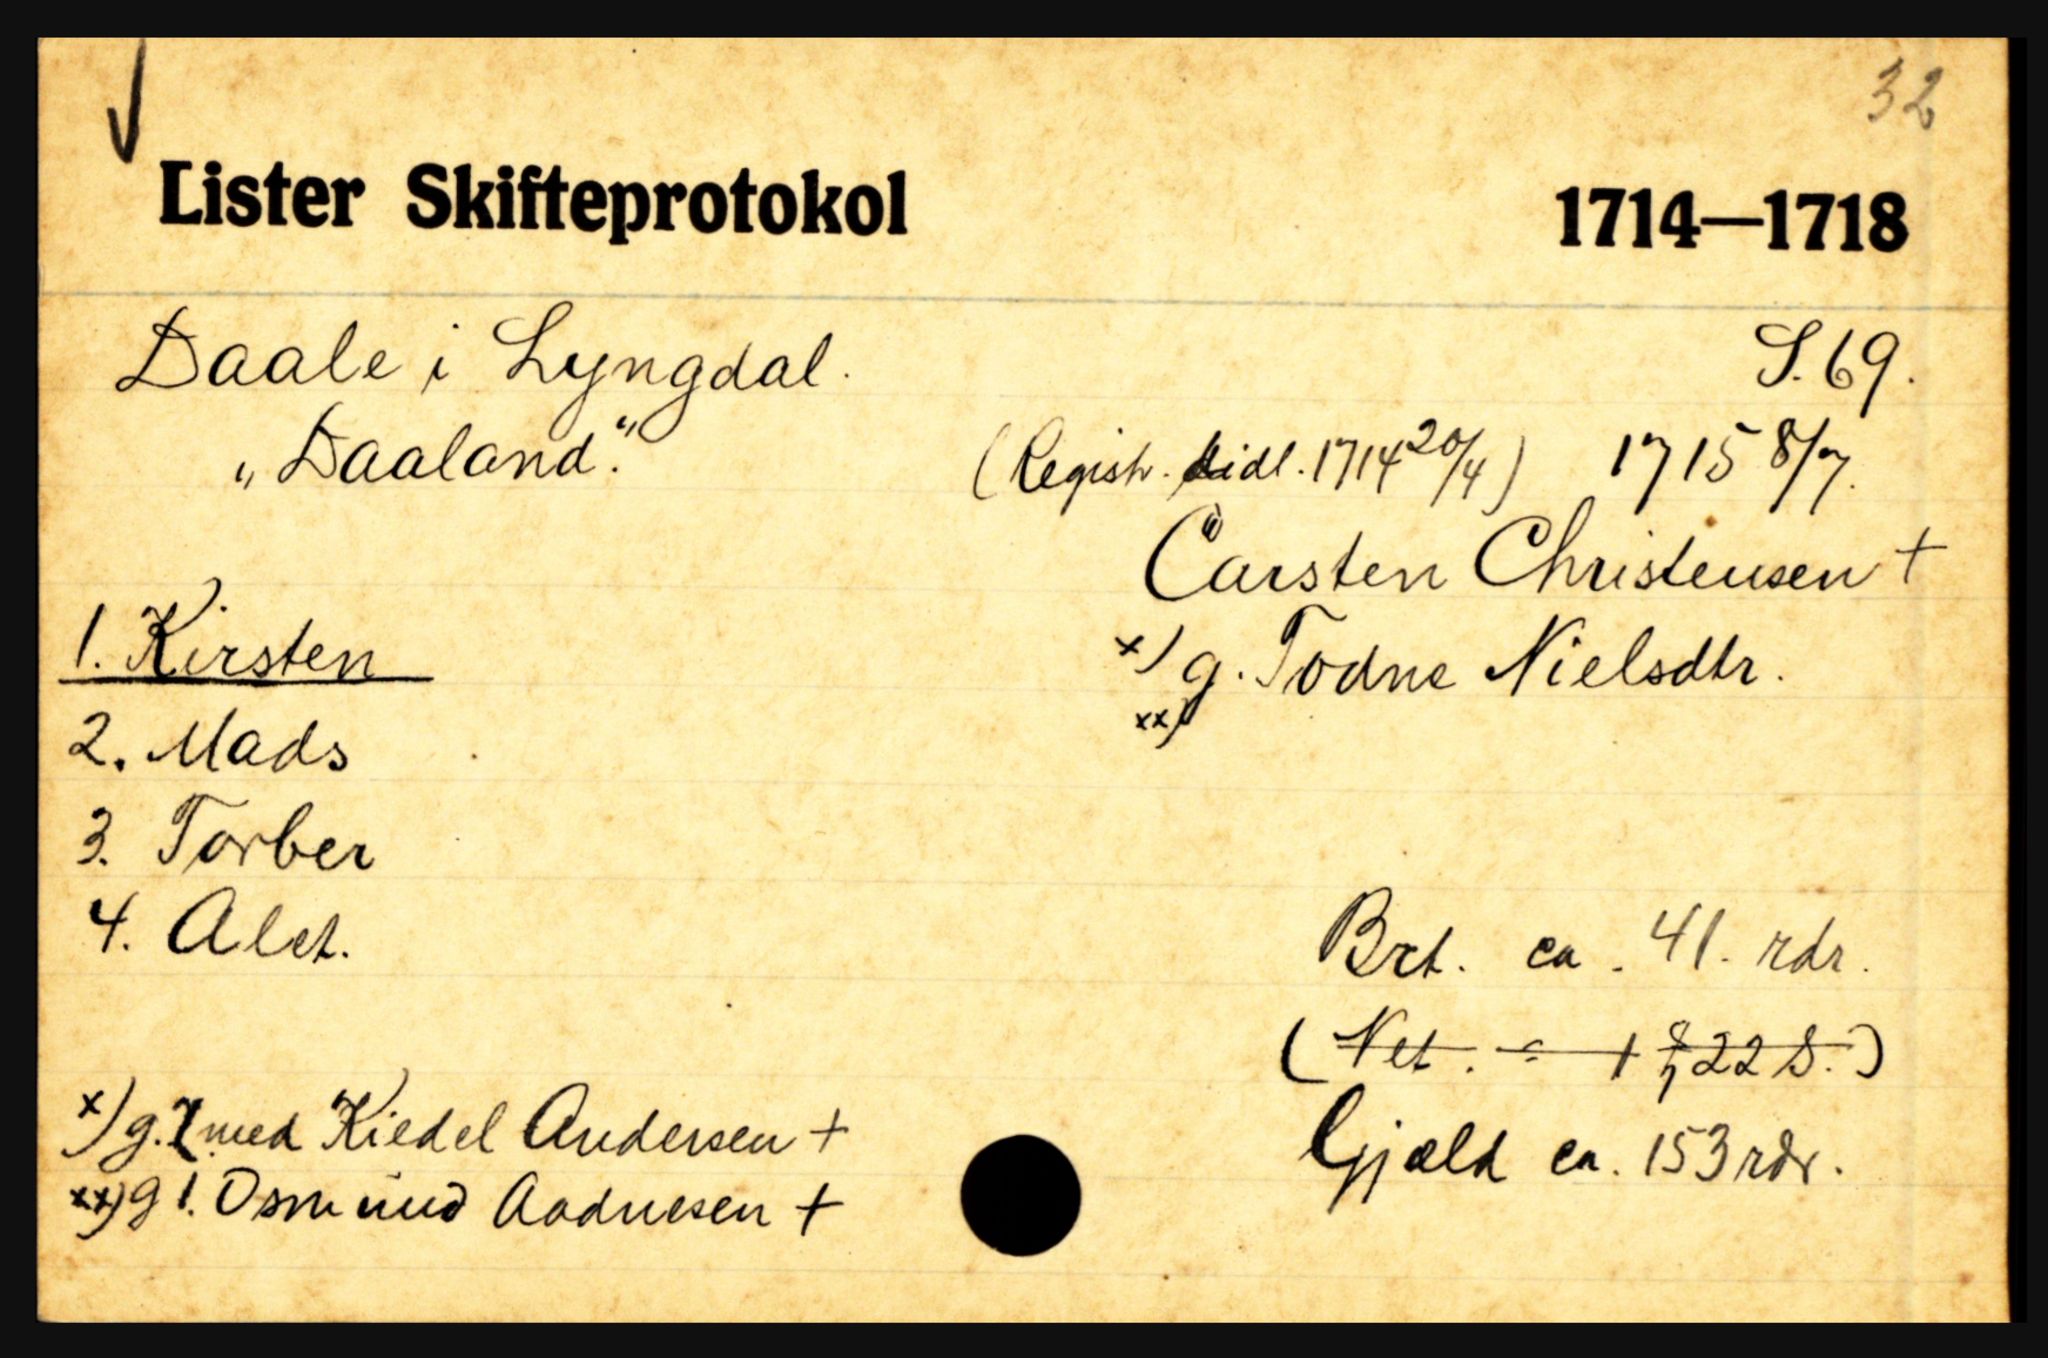 32
Lister Skifteprotokol 1714—1718
Daale i Lyngdal. S. 69.
"Daaland." (Registr. tidl. 1714 20/4) 1715 8/7.
Carsten Christensen +
1. Kirsten x) g. Todne Nielsdtr.
xx)
2. Mads
3. Torber
4. Alet. Brt. ca. 41. rdr.
(Net. - + 22 S.)
x) g. 2 med Kiedel Andersen + Gjæld ca. 153 rdr.
xx) g 1. Osmund Aadnesen +